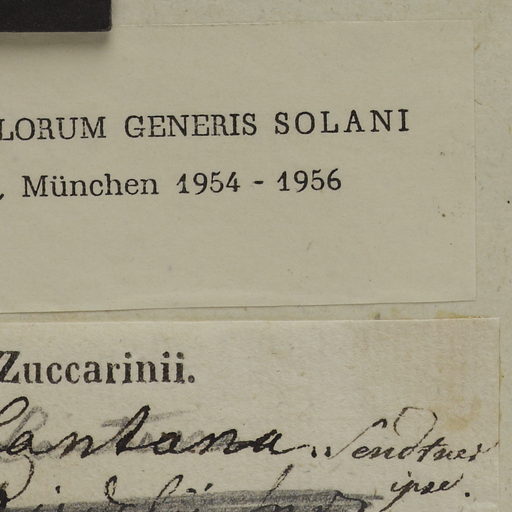 LORUM GENERIS SOLANI
, München 1954 - 1956
Zuccarinii.
Lantana. Sendtner
ipse.